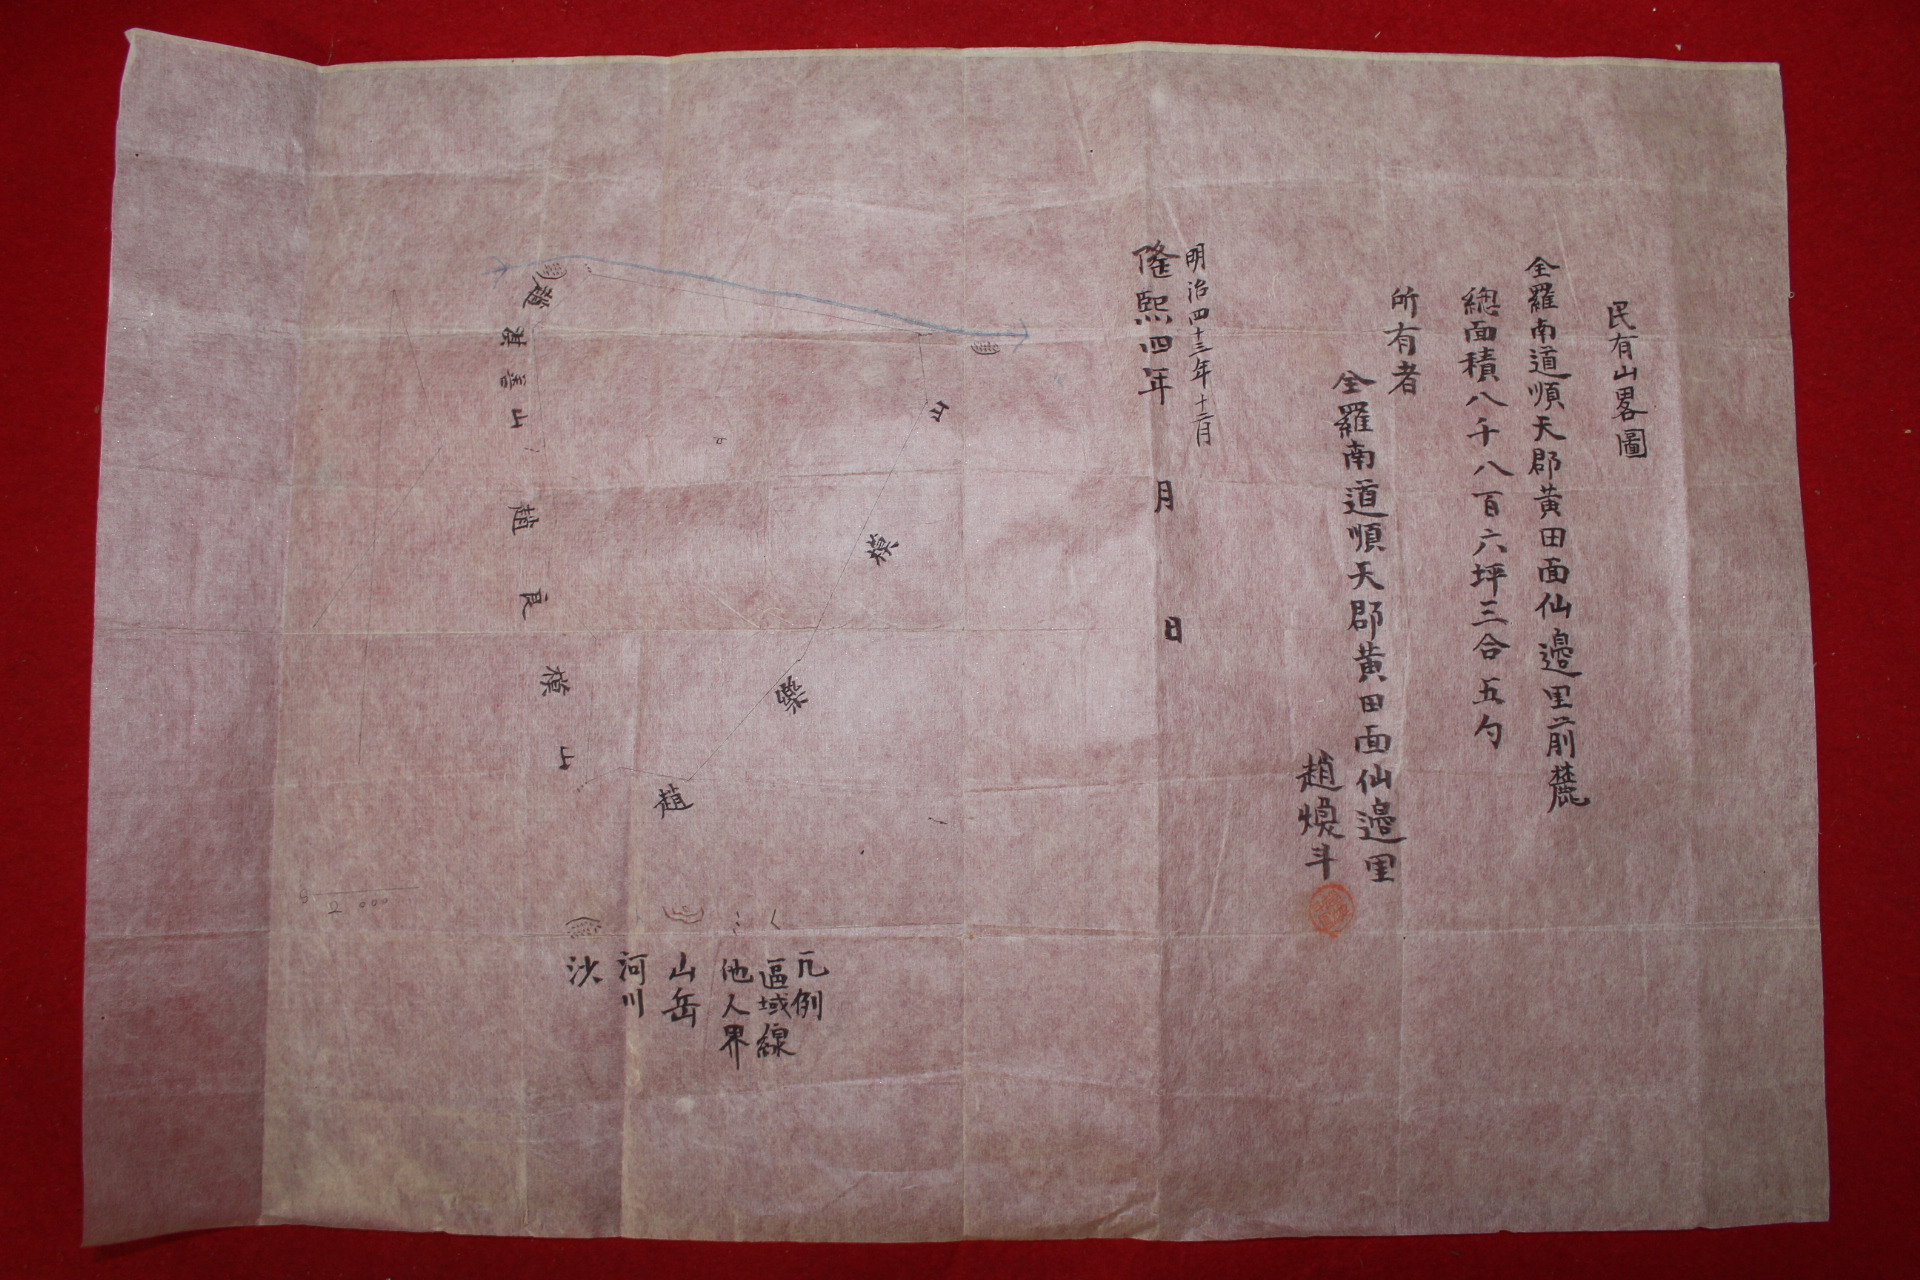 民有山畧圖
全羅南道順天郡黃田面仙邉里前麓
總面積八千八百六坪三合五勺
所有者
全羅南道順天郡黃田面仙邉里
趙煥斗
明治四十三年十二月
隆熙四年 月 日
趙基善山
趙良模山
趙
凡例
區域線
他人界
山岳
河川
沙